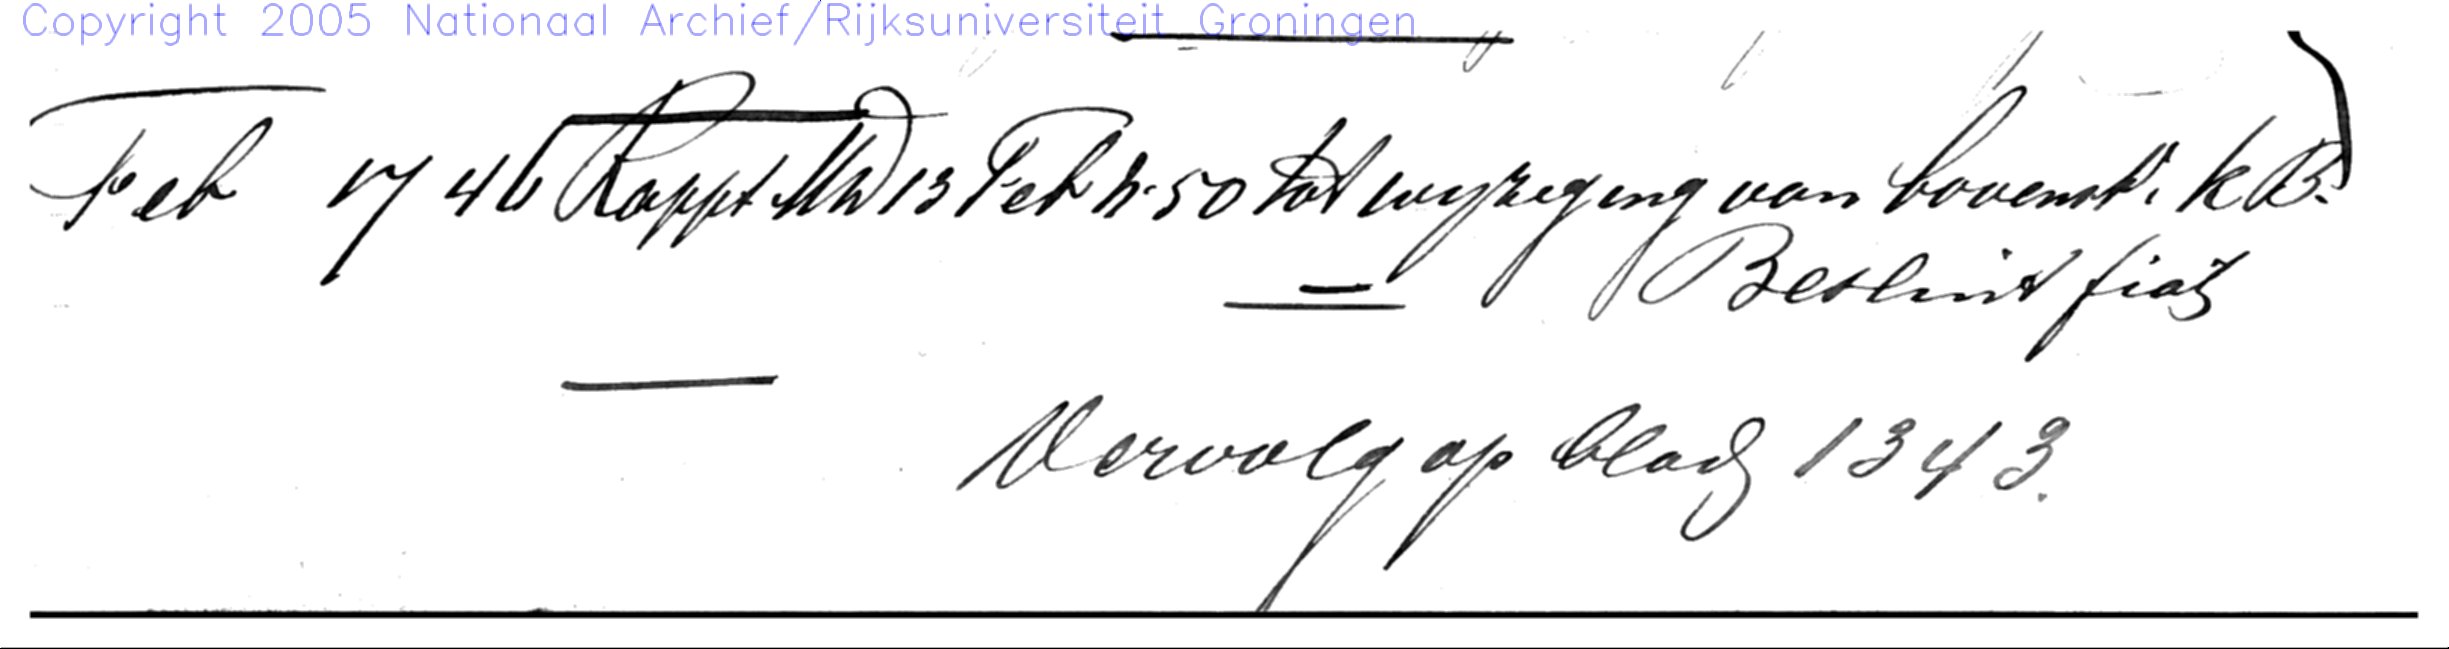 Copyright 2005 Nationaal Archief/Rijksuniversiteit Groningen
Feb 17 46 Rappt MW 13 Feb h. 50 tot wijziging van bovenst. KB.
Besluit fiat
Vervolg op bladz 1343.